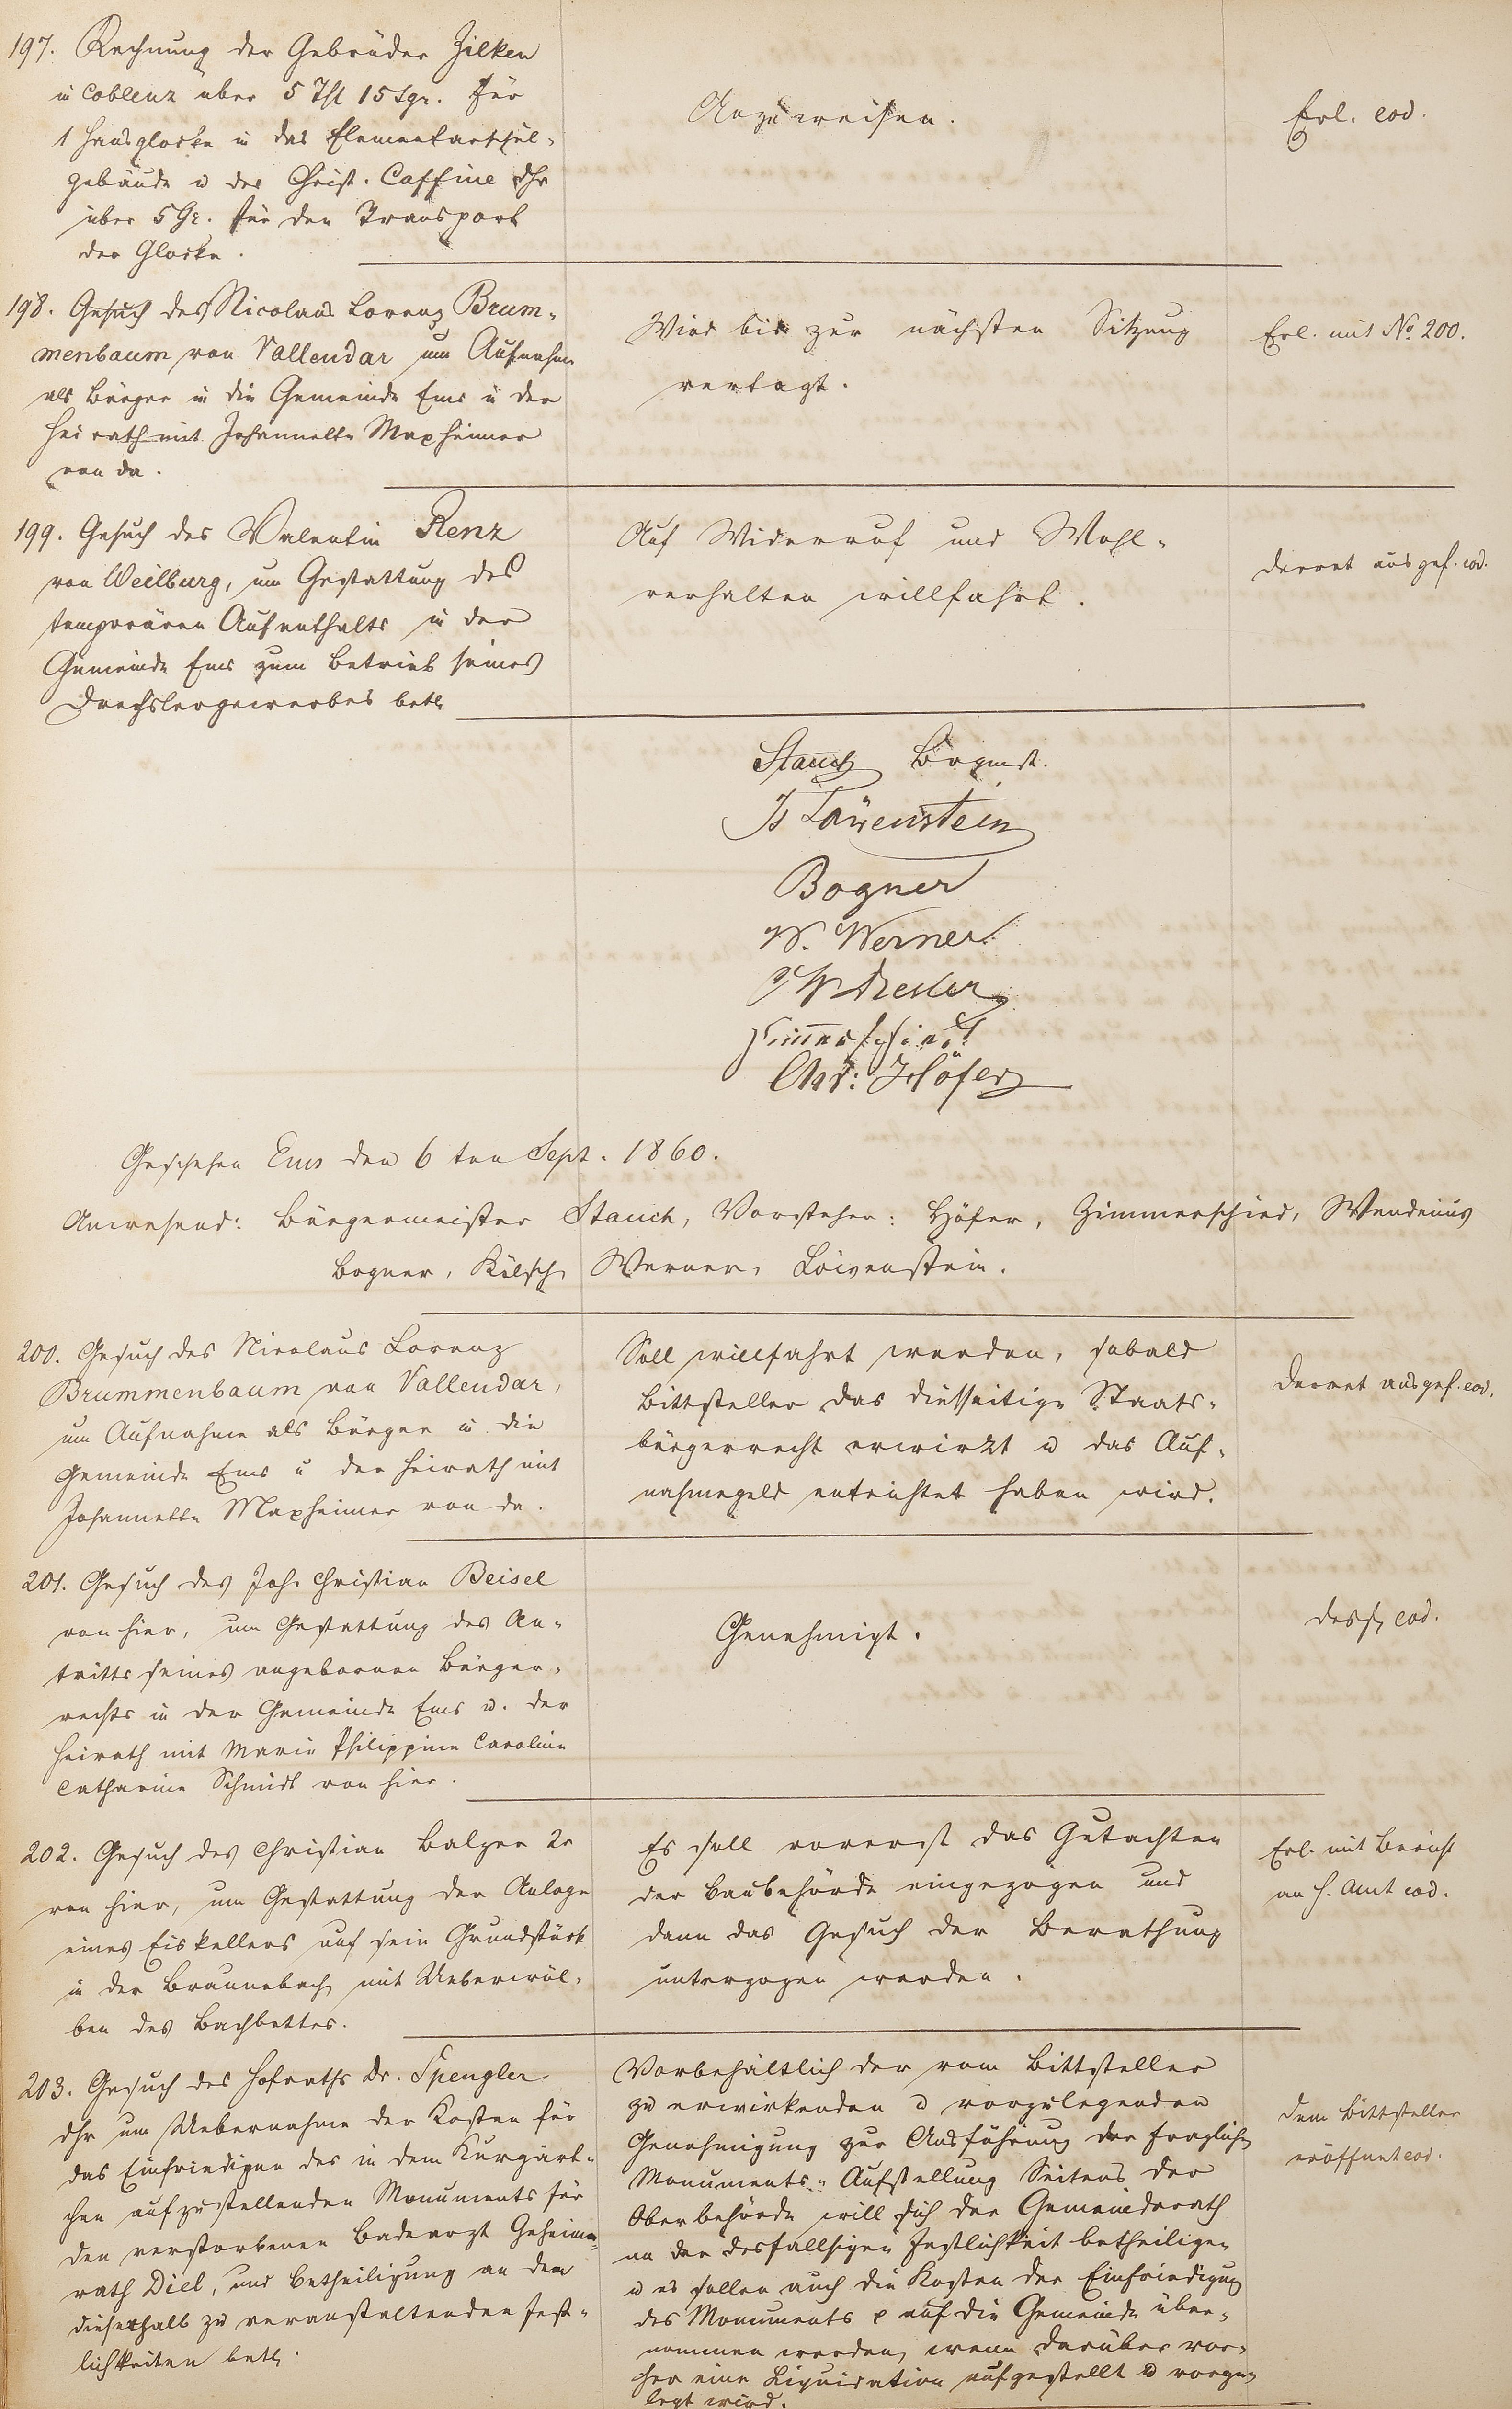 197. Rechnung der Gebrüder Zilken
in Coblenz über 5 Thl 15 Sgr. für
1 Hausglocke in das Elementarschul-
gebäude u des Christ. Caffine dhr
über 5 Gr. für den Transport
der Glocke.
Anzuweisen.
Erl. eod.
198. Gesuch des Nicolaus Lorenz Brum-
menbaum von Vallendar um Aufnahme
als Bürger in die Gemeinde Ems u der
Heirath mit Johannette Maxheimer
von da.
Wird bis zur nächsten Sitzung
vertagt.
Erl. mit No. 200.
199. Gesuch des Valentin Renz
von Weilburg, um Gestattung des
temporären Aufenthalts in der
Gemeinde Ems zum Betrieb seines
Drechslergewerbes betr.
Auf Widerruf und Wohl-
verhalten willfahrt.
Decret ausgef. eod.
Stauch Bürgmst.
Is Löwenstein
Bogner
W. Werner
Zimmerschied
Chr: Höfer
Geschehen Ems den 6ten Sept. 1860.
Anwesend: Bürgermeister Stauch, Vorsteher: Höfer, Zimmerschied, Wendenius
Bogner, Kölsch, Werner, Löwenstein.
200. Gesuch des Nicolaus Lorenz
Brummenbaum von Vallendar,
um Aufnahme als Bürger in die
Gemeinde Ems u der Heirath mit
Johannette Maxheimer von da.
Soll willfahrt werden, sobald
Bittsteller das diesseitige Staats-
bürgerrecht erwirkt u das Auf-
nahmegeld entrichtet haben wird.
Decret ausgef. eod.
201. Gesuch des Joh. Christian Beisel
von hier, um Gestattung des An-
tritts seines angebornen Bürger-
rechts in der Gemeinde Ems u. der
Heirath mit Marie Philippine Caroline
Catharine Schmidt von hier.
Genehmigt.
desgl. eod.
202. Gesuch des Christian Balzer 2r
von hier, um Gestattung der Anlage
eines Eiskellers auf sein Grundstück
in der Braunebach, mit Ueberwöl-
ben des Bachbettes.
Es soll vorerst das Gutachten
der Baubehörde eingezogen und
dann das Gesuch der Berathung
unterzogen werden.
Erl. mit Bericht
an H. Amt eod.
203. Gesuch des Hofraths Dr. Spengler
dhr um Uebernahme der Kosten für
das Einfriedigen des in dem Kurgärt-
chen aufzustellenden Monuments für
den verstorbenen Badearzt Geheime-
rath Diel, und Betheiligung an den
dieserhalb zu veranstaltenden Fest-
lichkeiten betr.
Vorbehältlich der vom Bittsteller
zu erwirkenden u vorzulegenden
Genehmigung zur Ausführung der fraglichen
Monuments-Aufstellung Seitens der
Oberbehörde will sich der Gemeinderath
an der desfallsigen Festlichkeit betheiligen
u es sollen auch die Kosten der Einfriedigung
des Monuments p auf die Gemeinde über-
nommen werden, wenn darüber vor-
her eine Liquidation aufgestellt u vorge-
legt wird.
Dem Bittsteller
eröffnet eod.